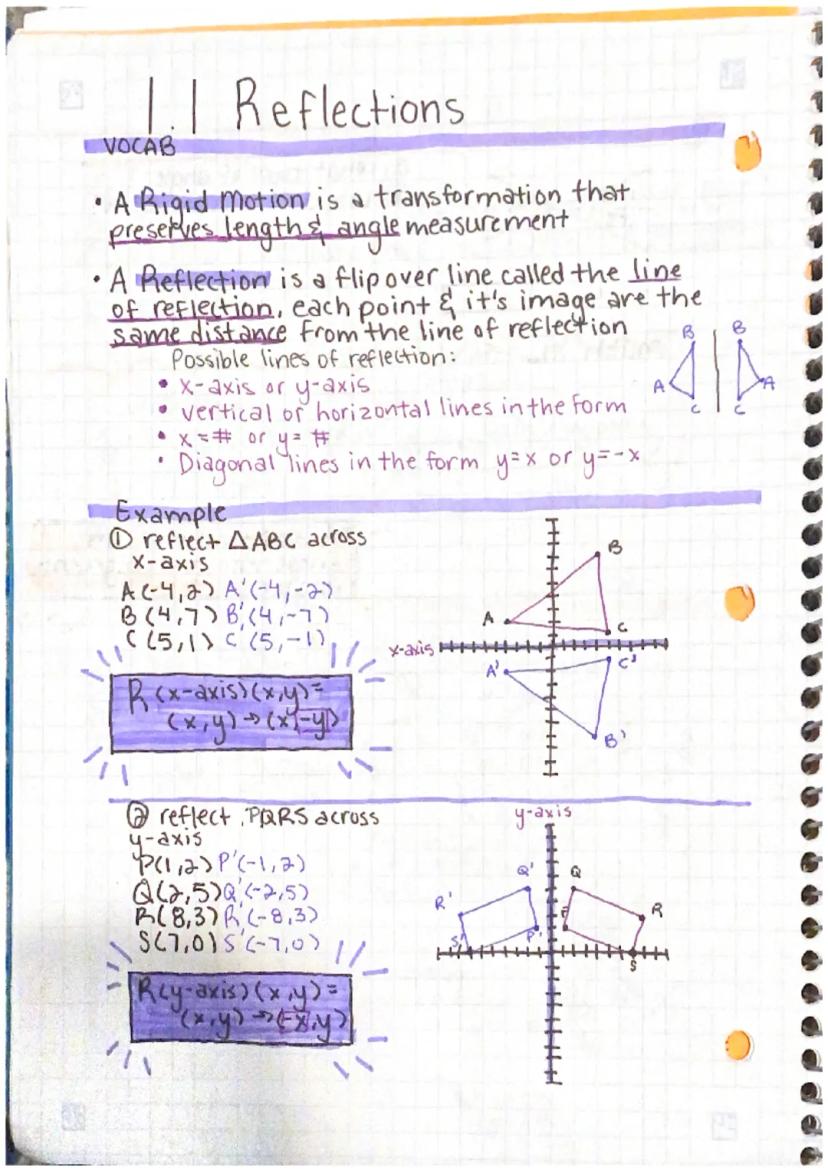 1.1 Reflections
VOCAB
• A Rigid Motion is a transformation that
preserves length & angle measurement
• A Reflection is a flip over line called the line
of reflection, each point & it's image are the
same distance from the line of reflection
Possible lines of reflection:
• x-axis or y-axis
• vertical or horizontal lines in the form
• x=# or y=#
• Diagonal lines in the form y=x or y=-x
B B
A A
C C
Example
① reflect △ABC across
x-axis
A(-4,2) A'(-4,-2)
B(4,7) B'(4,-7)
C(5,1) C'(5,-1)
R(x-axis)(x,y)=
(x,y)→(x,-y)
B
A
C
x-axis
A'
C'
B'
② reflect PQRS across
y-axis
P(1,2) P'(-1,2)
Q(2,5) Q'(-2,5)
R(8,3) R'(-8,3)
S(7,0) S'(-7,0)
R(y-axis)(x,y)=
(x,y)→(-x,y)
y-axis
Q' Q
R' R
P' P
S' S